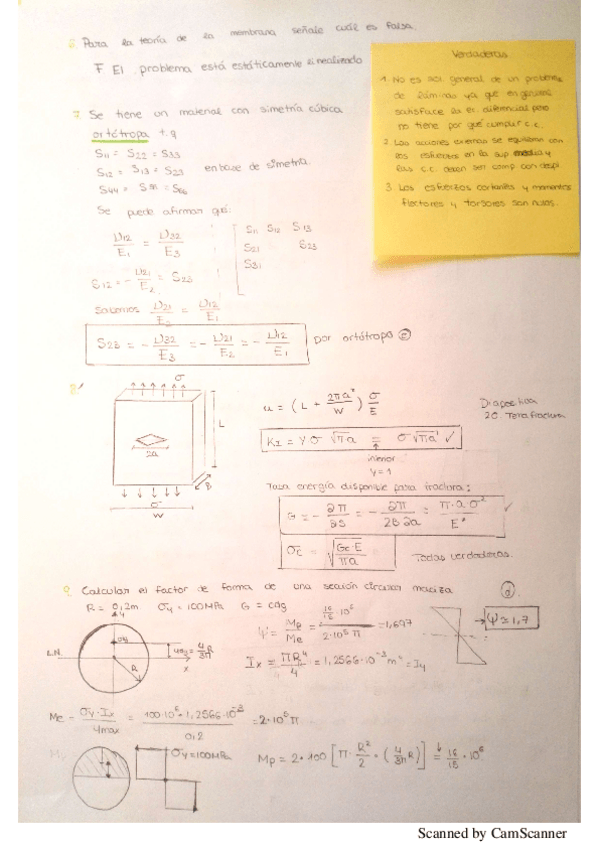 6. Para la teoría de la membrana señale cuál es falsa.
F El problema está estáticamente linealizado
Verdaderas
1. No es sol. general de un problema
de láminas ya que en general
satisface la ec. diferencial pero
no tiene por qué cumplir c.c.
2. Las acciones externas se equilibran con
los esfuerzos en la sup media y
las c.c. deben ser comp con desp
3. Los esfuerzos cortantes y momentos
flectores y torsores son nulos.
7. Se tiene un material con simetría cúbica
ortótropa t.q
S11 = S22 = S33
S12 = S13 = S23 en base de simetría.
S44 = S55 = S66
Se puede afirmar que:
υ12/E1 = υ32/E3
S11 S12 S13
S21 S23
S31
S12 = - υ21/E2 = S23
Sabemos υ21/E2 = υ12/E1
S23 = - υ32/E3 = - υ21/E2 = - υ12/E1 por ortótropo
8.
σ
L
2a
B
σ
W
u = (L + 2πa²/W) σ/E
Diapositiva
20 Tema fractura
KI = Y σ √πa = σ √πa ✓
interior
Y=1
Tasa energía disponible para fractura:
G = - ∂π/∂S = - ∂π/2B∂a = π·a σ²/E' ✓
σc = √(Gc·E/πa)
Todas verdaderas.
9. Calcular el factor de forma de una sección circular maciza d
R = 0,2m σy = 100MPa G = cdg
ψ = Mp/Me = 16/15·10⁶ / 2·10⁵π = 1,697
ψ ≈ 1,7
L.N.
R
x
Ix = πR⁴/4 = 1,2566·10⁻³ m⁴ = Iy
Me = σy·Ix/ymax = 100·10⁶·1,2566·10⁻³/0,2 = 2·10⁵ π
σy=100MPa
Mp = 2·100 [π·R²/2·(4/3π R)] = 16/15·10⁶
Scanned by CamScanner